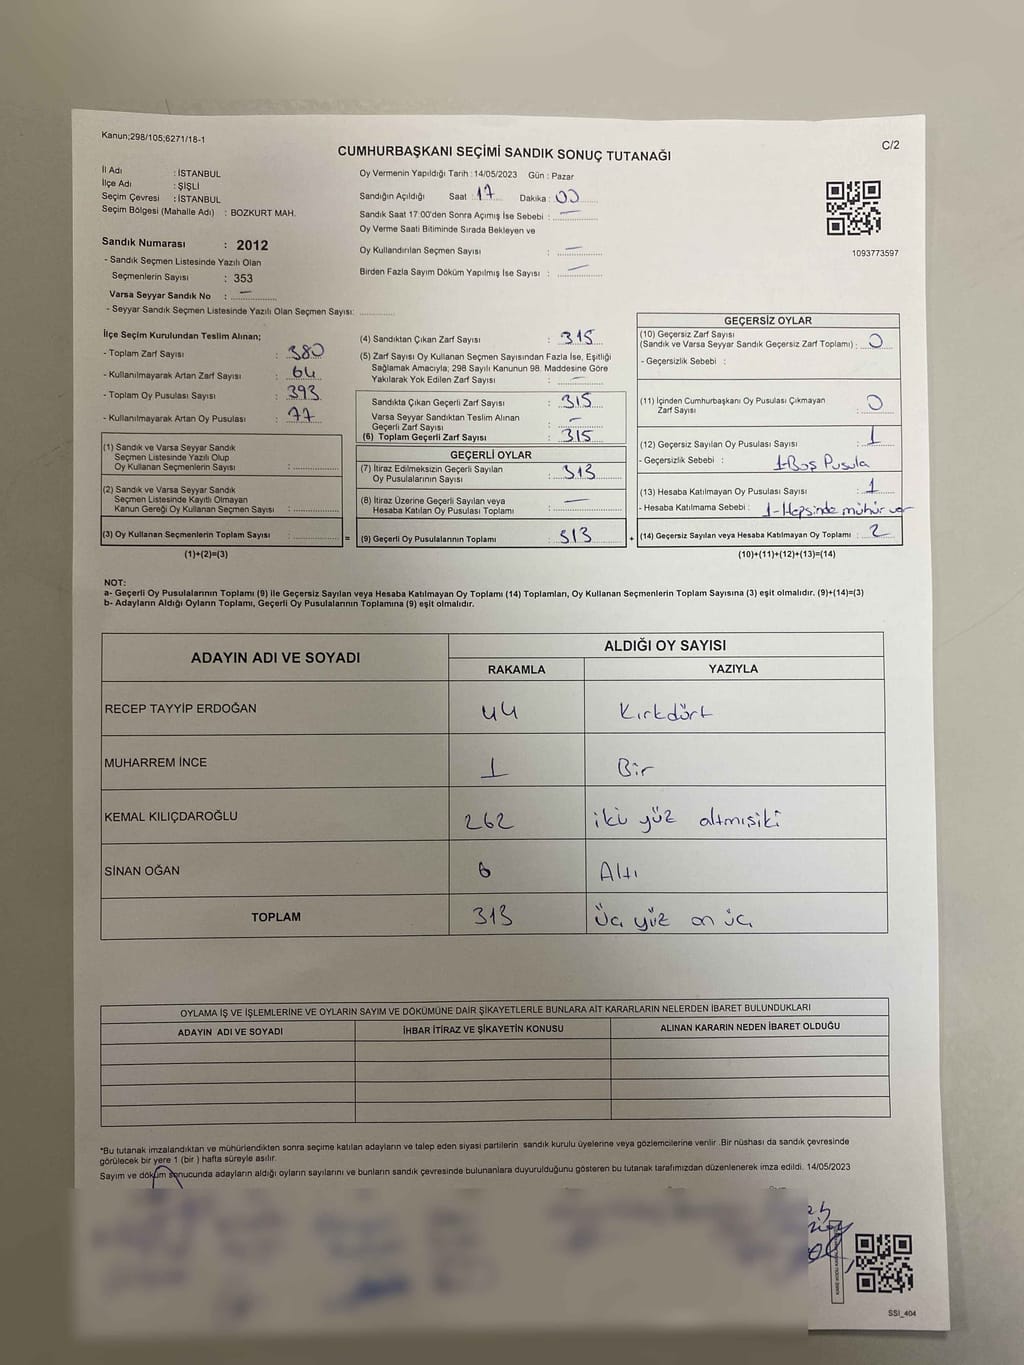 Kanun;298/105;6271/18-1
C/2
CUMHURBAŞKANI SEÇİMİ SANDIK SONUÇ TUTANAĞI
İl Adı : İSTANBUL
İlçe Adı : ŞİŞLİ
Seçim Çevresi : İSTANBUL
Seçim Bölgesi (Mahalle Adı) : BOZKURT MAH.
Sandık Numarası : 2012
- Sandık Seçmen Listesinde Yazılı Olan
Seçmenlerin Sayısı : 353
Varsa Seyyar Sandık No : —
- Seyyar Sandık Seçmen Listesinde Yazılı Olan Seçmen Sayısı: ............
Oy Vermenin Yapıldığı Tarih : 14/05/2023 Gün : Pazar
Sandığın Açıldığı Saat 17 Dakika : 00
Sandık Saat 17:00'den Sonra Açımış İse Sebebi : —
Oy Verme Saati Bitiminde Sırada Bekleyen ve
Oy Kullandırılan Seçmen Sayısı : —
Birden Fazla Sayım Döküm Yapılmış İse Sayısı : —
1093773597
İlçe Seçim Kurulundan Teslim Alınan;
- Toplam Zarf Sayısı : 380
- Kullanılmayarak Artan Zarf Sayısı : 64
- Toplam Oy Pusulası Sayısı : 393
- Kullanılmayarak Artan Oy Pusulası : 77
(1) Sandık ve Varsa Seyyar Sandık
Seçmen Listesinde Yazılı Olup
Oy Kullanan Seçmenlerin Sayısı : ............
(2) Sandık ve Varsa Seyyar Sandık
Seçmen Listesinde Kayıtlı Olmayan
Kanun Gereği Oy Kullanan Seçmen Sayısı : ............
(3) Oy Kullanan Seçmenlerin Toplam Sayısı : ............
=
(1)+(2)=(3)
(4) Sandıktan Çıkan Zarf Sayısı : 315
(5) Zarf Sayısı Oy Kullanan Seçmen Sayısından Fazla İse, Eşitliği
Sağlamak Amacıyla; 298 Sayılı Kanunun 98. Maddesine Göre
Yakılarak Yok Edilen Zarf Sayısı : —
Sandıkta Çıkan Geçerli Zarf Sayısı : 315
Varsa Seyyar Sandıktan Teslim Alınan
Geçerli Zarf Sayısı : —
(6) Toplam Geçerli Zarf Sayısı : 315
GEÇERLİ OYLAR
(7) İtiraz Edilmeksizin Geçerli Sayılan
Oy Pusulalarının Sayısı : 313
(8) İtiraz Üzerine Geçerli Sayılan veya
Hesaba Katılan Oy Pusulası Toplamı : —
(9) Geçerli Oy Pusulalarının Toplamı : 313
+
GEÇERSİZ OYLAR
(10) Geçersiz Zarf Sayısı
(Sandık ve Varsa Seyyar Sandık Geçersiz Zarf Toplamı) : 0
- Geçersizlik Sebebi :
(11) İçinden Cumhurbaşkanı Oy Pusulası Çıkmayan
Zarf Sayısı : 0
(12) Geçersiz Sayılan Oy Pusulası Sayısı : 1
- Geçersizlik Sebebi : 1-Boş Pusula
(13) Hesaba Katılmayan Oy Pusulası Sayısı : 1
- Hesaba Katılmama Sebebi : 1-Hepsinde mühür var
(14) Geçersiz Sayılan veya Hesaba Katılmayan Oy Toplamı : 2
(10)+(11)+(12)+(13)=(14)
NOT:
a- Geçerli Oy Pusulalarının Toplamı (9) ile Geçersiz Sayılan veya Hesaba Katılmayan Oy Toplamı (14) Toplamları, Oy Kullanan Seçmenlerin Toplam Sayısına (3) eşit olmalıdır. (9)+(14)=(3)
b- Adayların Aldığı Oyların Toplamı, Geçerli Oy Pusulalarının Toplamına (9) eşit olmalıdır.
ADAYIN ADI VE SOYADI
ALDIĞI OY SAYISI
RAKAMLA YAZIYLA
RECEP TAYYİP ERDOĞAN 44 Kırkdört
MUHARREM İNCE 1 Bir
KEMAL KILIÇDAROĞLU 262 iki yüz altmışiki
SİNAN OĞAN 6 Altı
TOPLAM 313 Üç yüz on üç
OYLAMA İŞ VE İŞLEMLERİNE VE OYLARIN SAYIM VE DÖKÜMÜNE DAİR ŞİKAYETLERLE BUNLARA AİT KARARLARIN NELERDEN İBARET BULUNDUKLARI
ADAYIN ADI VE SOYADI İHBAR İTİRAZ VE ŞİKAYETİN KONUSU ALINAN KARARIN NEDEN İBARET OLDUĞU
*Bu tutanak imzalandıktan ve mühürlendikten sonra seçime katılan adayların ve talep eden siyasi partilerin sandık kurulu üyelerine veya gözlemcilerine verilir .Bir nüshası da sandık çevresinde
görülecek bir yere 1 (bir ) hafta süreyle asılır.
Sayım ve döküm sonucunda adayların aldığı oyların sayılarını ve bunların sandık çevresinde bulunanlara duyurulduğunu gösteren bu tutanak tarafımızdan düzenlenerek imza edildi. 14/05/2023
SSI_404